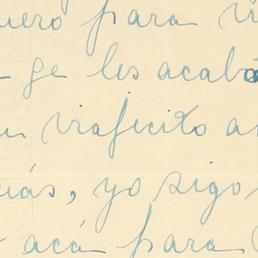 uero para
ge les acabó
viajecito a
más, yo sigo
acá para